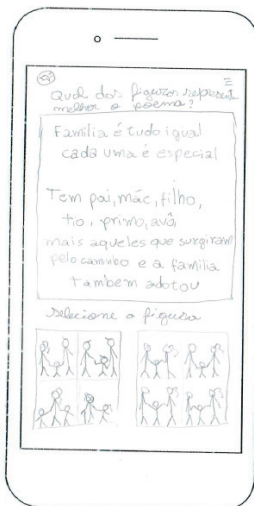 Qual das figuras represent
melhor o poema?
Familia é tudo igual
cada uma é especial
Tem pai, mãe, filho,
tio, primo, avô,
mais aqueles que surgiram
pelo caminho e a familia
tambem adotou
selecione a figura